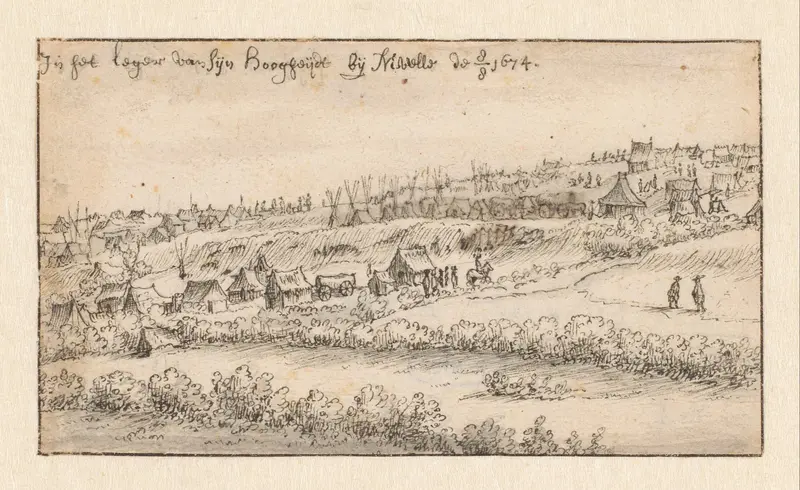 In het leger van Sijn Hoogheijdt bij Nivelle de 8/8 1674.